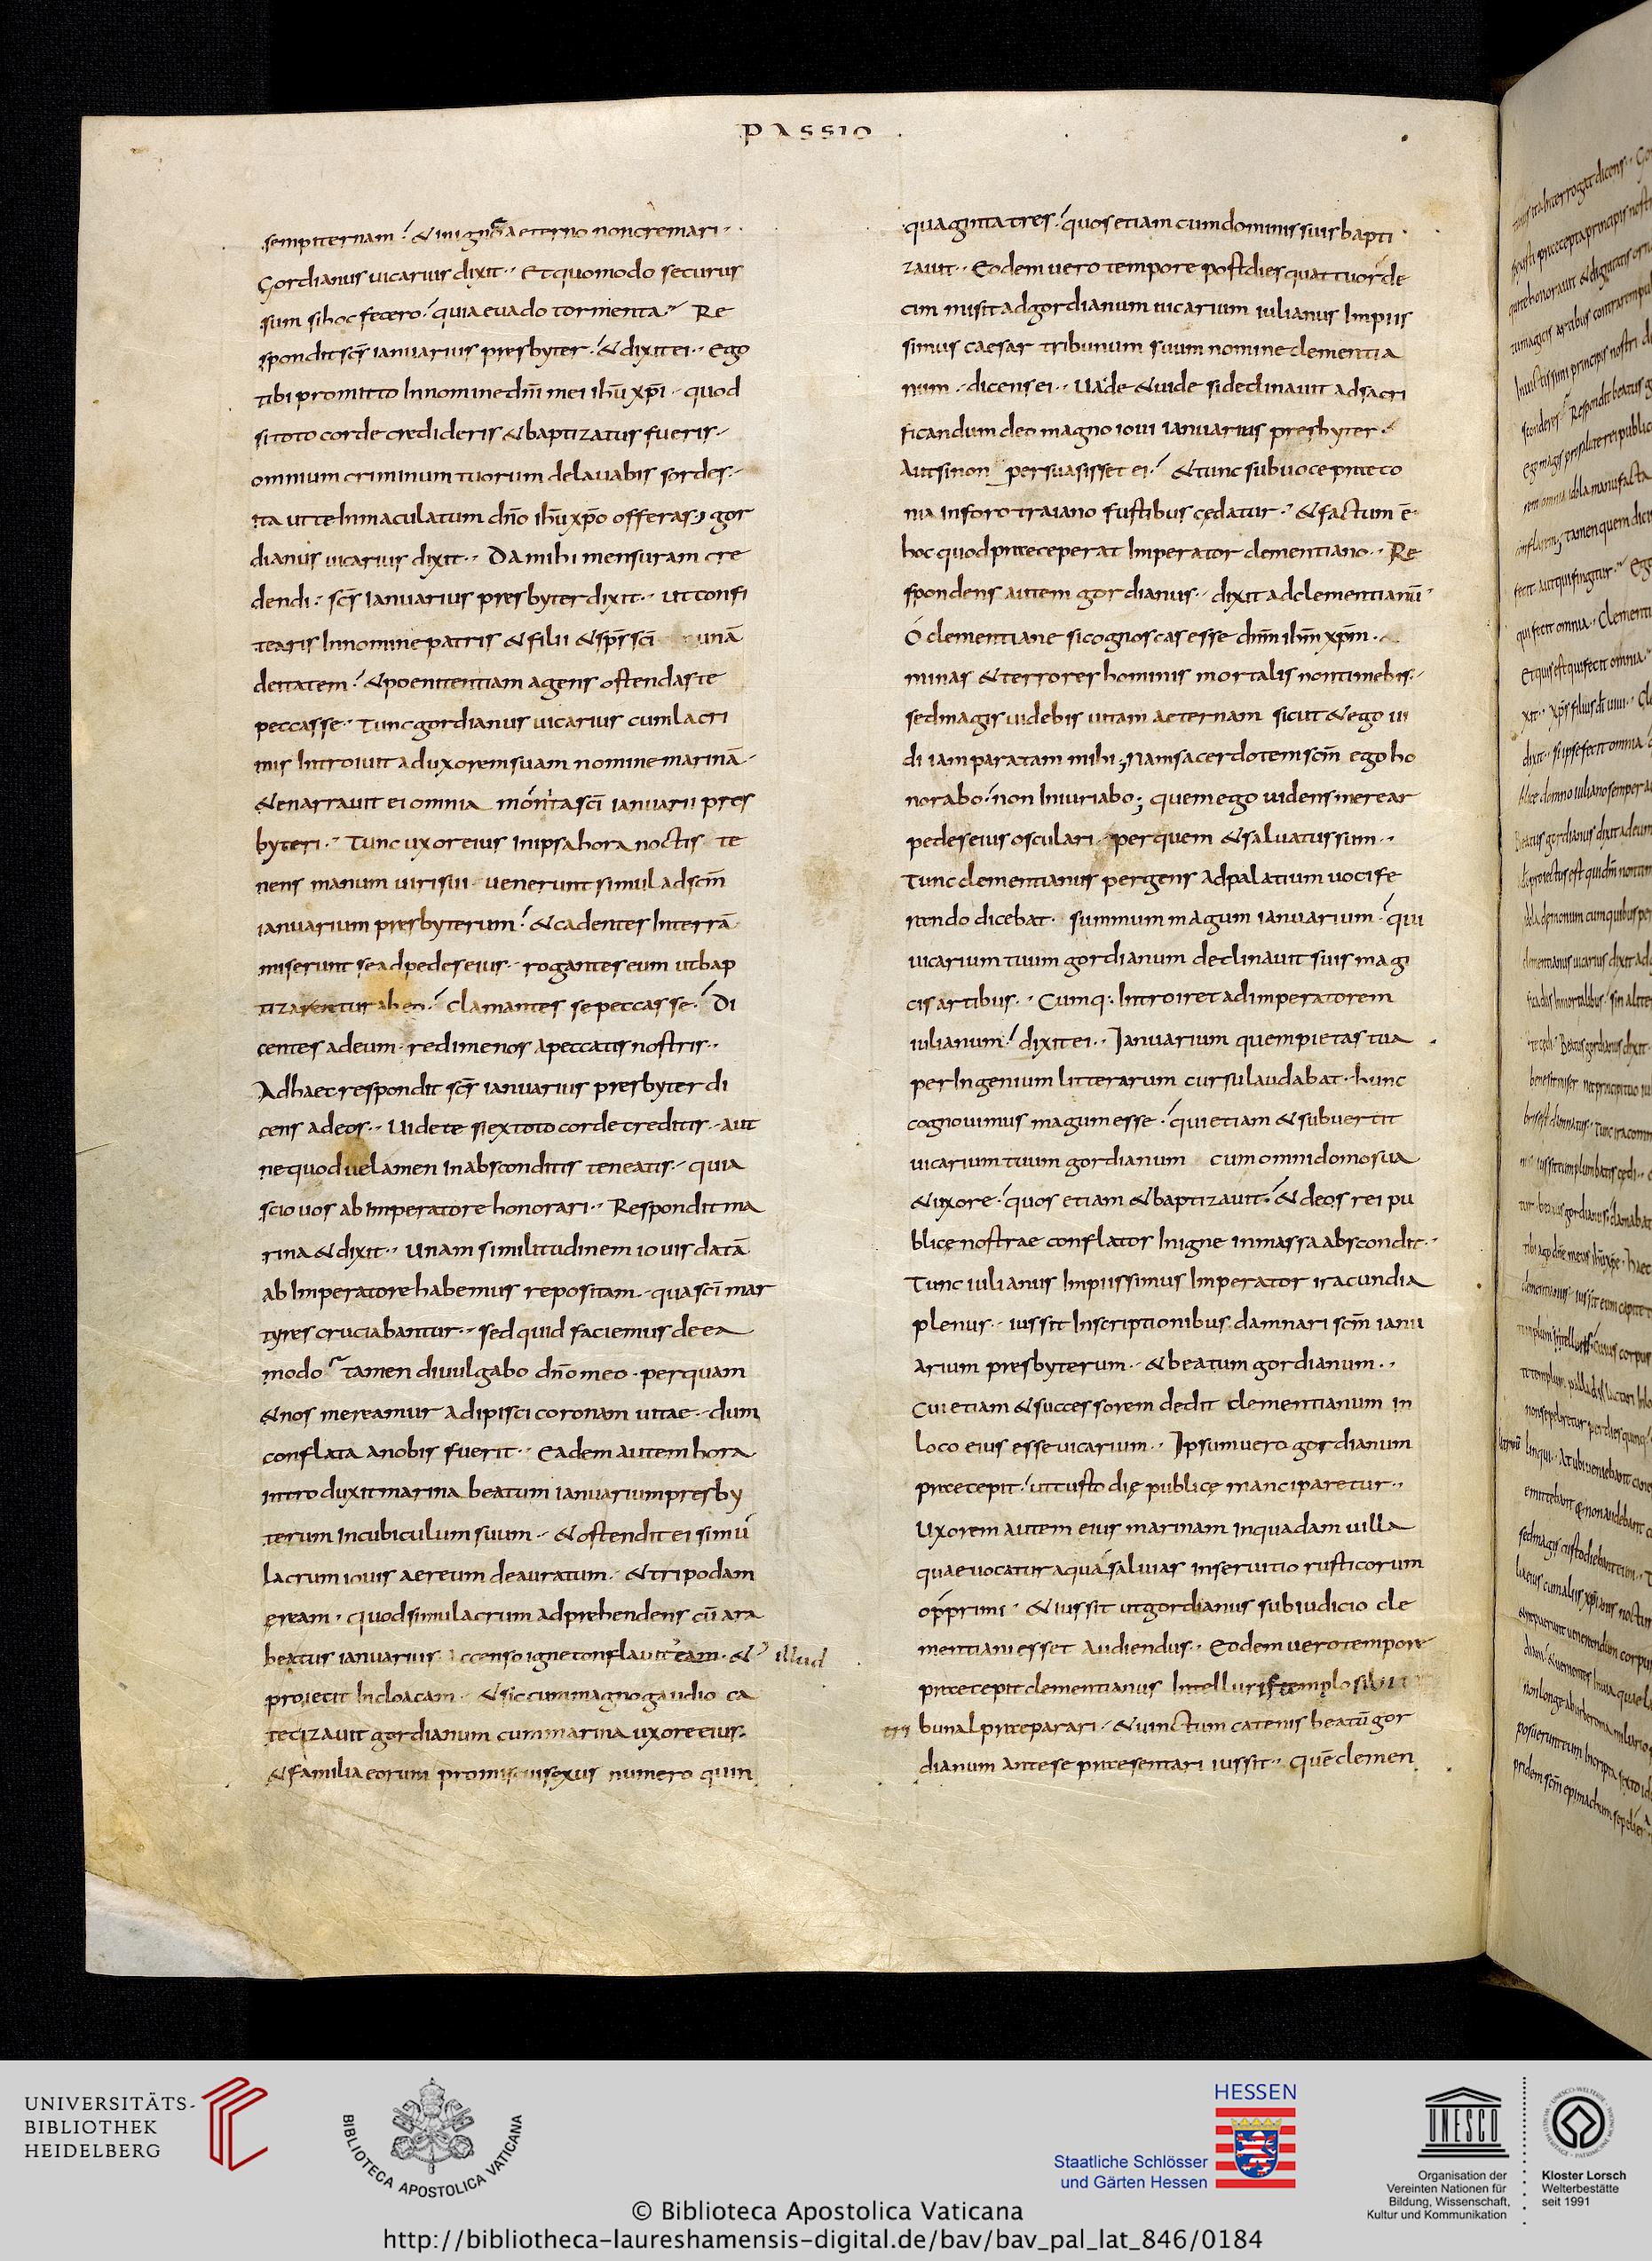 PASSIO
sempiternam & in igne aeterno non cremari
Gordianus uicarius dixit Et quomodo securus
sum si hoc fecero quia euado tormenta Re
spondit scs ianuarius presbyter & dixit ei Ego
tibi promitto In nomine dni mei ihu xpi quod
si toto corde credideris & baptizatus fueris
omnium criminum tuorum delauabis sordes
ita ut te Inmaculatum dno ihu xpo offeras; gor
dianus uicarius dixit Da mihi mensuram cre
dendi scs Ianuarius presbyter dixit ut confi
tearis In nomine patris & filii & sps sci unā
deitatem & poenitentiam agens ostendas te
peccasse Tunc gordianus uicarius cum lacri
mis Introiuit ad uxorem suam nomine marinā
& enarrauit ei omnia monita sci ianuarii pres
byteri Tunc uxor eius In ipsa hora noctis te
nens manum uiri sui uenerunt simul ad scm
ianuarium presbyterum & cadentes In terrā
miserunt se ad pedes eius rogantes eum ut bap
tizarentur ab eo clamantes se peccasse Di
centes ad eum redime nos a peccatis nostris
Ad haec respondit scs ianuarius presbyter di
cens ad eos Uidete si ex toto corde creditis aut
ne quod uelamen In absconditis teneatis quia
scio uos ab Imperatore honorari Respondit ma
rina & dixit Unam similitudinem iouis datā
ab Imperatore habemus repositam qua sci mar
tyres cruciabantur sed quid faciemus de ea
modo tamen diuulgabo dno meo per quam
& nos mereamur adipisci coronam uitae dum
conflata a nobis fuerit Eadem autem hora
Introduxit marina beatum ianuarium presby
terum In cubiculum suum & ostendit ei simu
lacrum iouis aereum deauratum & tripodam
ęream quod simulacrum adprehendens cū ara
beatus ianuarius accenso igne conflauit eam & illud
proiecit In cloacam & sic cum magno gaudio ca
tecizauit gordianum cum marina uxore eius
& familia eorum promiscui sexus numero quin
quaginta tres quos etiam cum dominis suis bapti
zauit Eodem uero tempore post dies quattuorde
cim misit ad gordianum uicarium iulianus Impiis
simus caesar tribunum suum nomine clementia
num dicens ei Uade & uide si declinauit ad sacri
ficandum deo magno ioui ianuarius presbyter
Aut si non persuasisset ei & tunc sub uoce preco
nia In foro traiano fustibus cędatur & factum ē
hoc quod preceperat Imperator clementiano Re
spondens autem gordianus dixit ad clementianū
O clementiane si cognoscas esse dnm ihm xpm
minas & terrores hominis mortalis non timebis
sed magis uidebis uitam aeternam sicut & ego ui
di iam paratam mihi; Nam sacerdotem scm ego ho
norabo non Iniuriabo; quem ego uidens merear
pedes eius osculari per quem & saluatus sum
Tunc clementianus pergens ad palatium uocife
rando dicebat summum magum ianuarium qui
uicarium tuum gordianum declinauit suis magi
cis artibus Cumq: Introiret ad imperatorem
iulianum dixit ei Ianuarium quem pietas tua
per Ingenium litterarum cursu laudabat hunc
cognouimus magum esse qui etiam & subuertit
uicarium tuum gordianum cum omni domo sua
& uxore quos etiam & baptizauit & deos rei pu
blicę nostrae conflator In igne in massa abscondit
Tunc iulianus Impiissimus Imperator iracundia
plenus iussit Inscriptionibus damnari scm ianu
arium presbyterum & beatum gordianum
Cui etiam & successorem dedit clementianum in
loco eius esse uicarium Ipsum uero gordianum
precepit ut custodię publicę manciparetur
Uxorem autem eius marinam in quadam uilla
quae uocatur aqua saluias in seruitio rusticorum
opprimi & iussit ut gordianus sub iudicio cle
mentiani esset Audiendus Eodem uero tempore
precepit clementianus In telluris templo sibi
tri bunal preparari & uinctum catenis beatū gor
dianum ante se presentari iussit Quē clemen
UNIVERSITÄTS-
BIBLIOTHEK
HEIDELBERG
BIBLIOTECA APOSTOLICA VATICANA
HESSEN
Staatliche Schlösser
und Gärten Hessen
UNESCO
Organisation der
Vereinten Nationen für
Bildung, Wissenschaft,
Kultur und Kommunikation
Kloster Lorsch
Welterbestätte
seit 1991
© Biblioteca Apostolica Vaticana
http://bibliotheca-laureshamensis-digital.de/bav/bav_pal_lat_846/0184